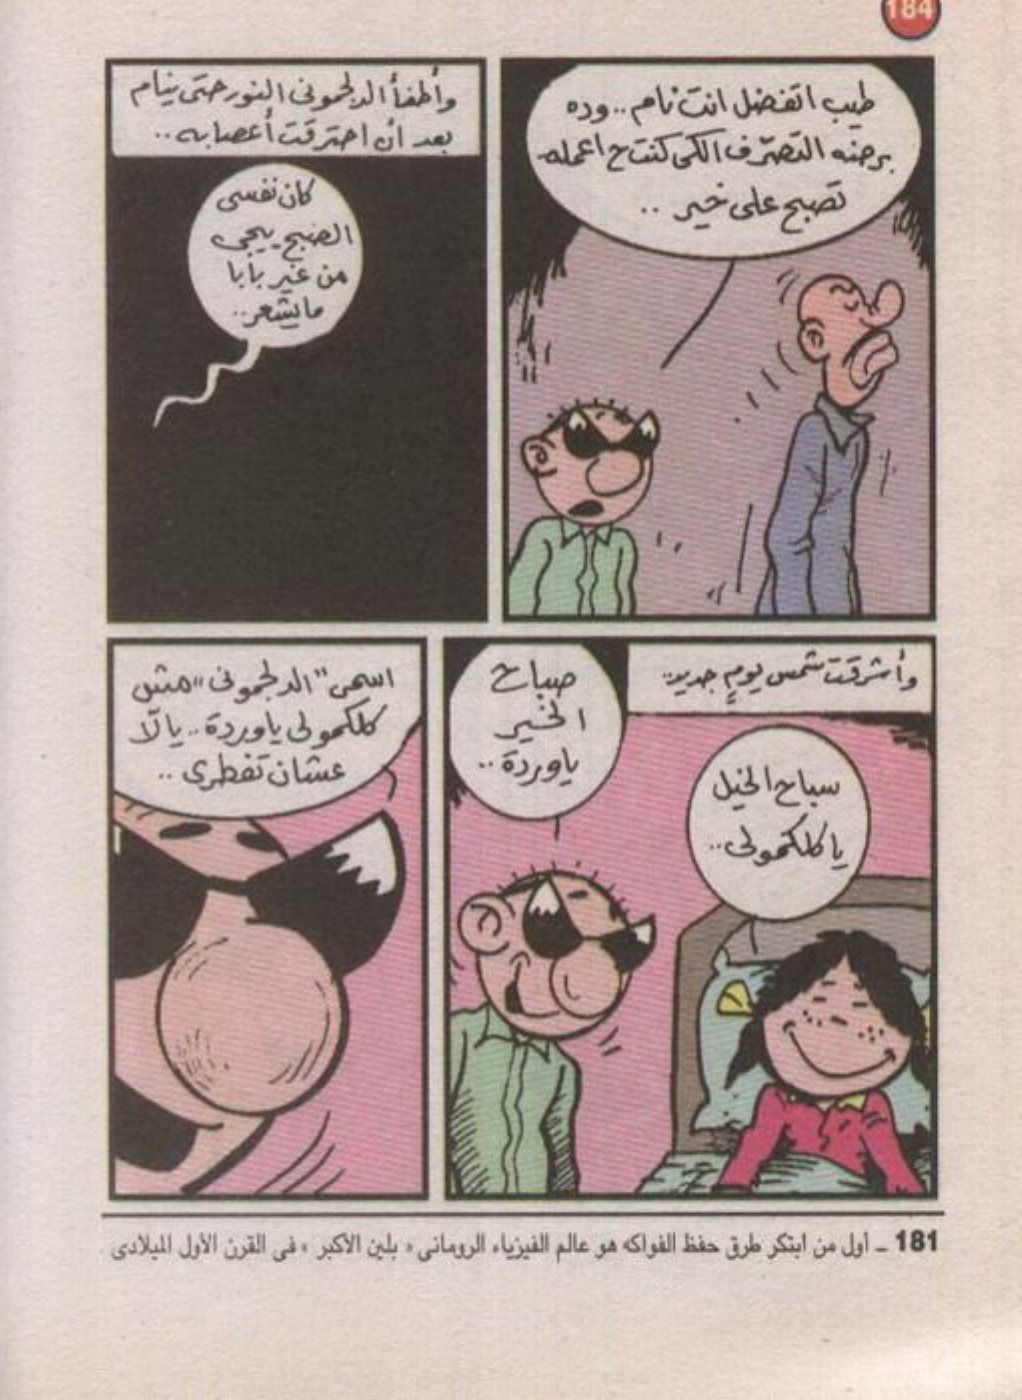 184
طيب اتفضل انت نام.. وده
برضه التصرّف اللى كنت ح اعمله
تصبح على خير ..
وأطفأ الدلجمونى النور حتى ينام
بعد أن احترقت أعصابه ..
كان نفسى
الصبح ييجى
من غير بابا
مايشعر..
وأشرقت شمس يوم جديد..
سباح الخيل
يا كلكمولى..
صباح
الخير
ياوردة ..
اسمى "الدلجمونى" مش
كلكمولى ياوردة .. يالّا
عشان تفطرى ..
181 ـ أول من ابتكر طرق حفظ الفواكه هو عالم الفيزياء الرومانى « بلين الأكبر » فى القرن الأول الميلادى .